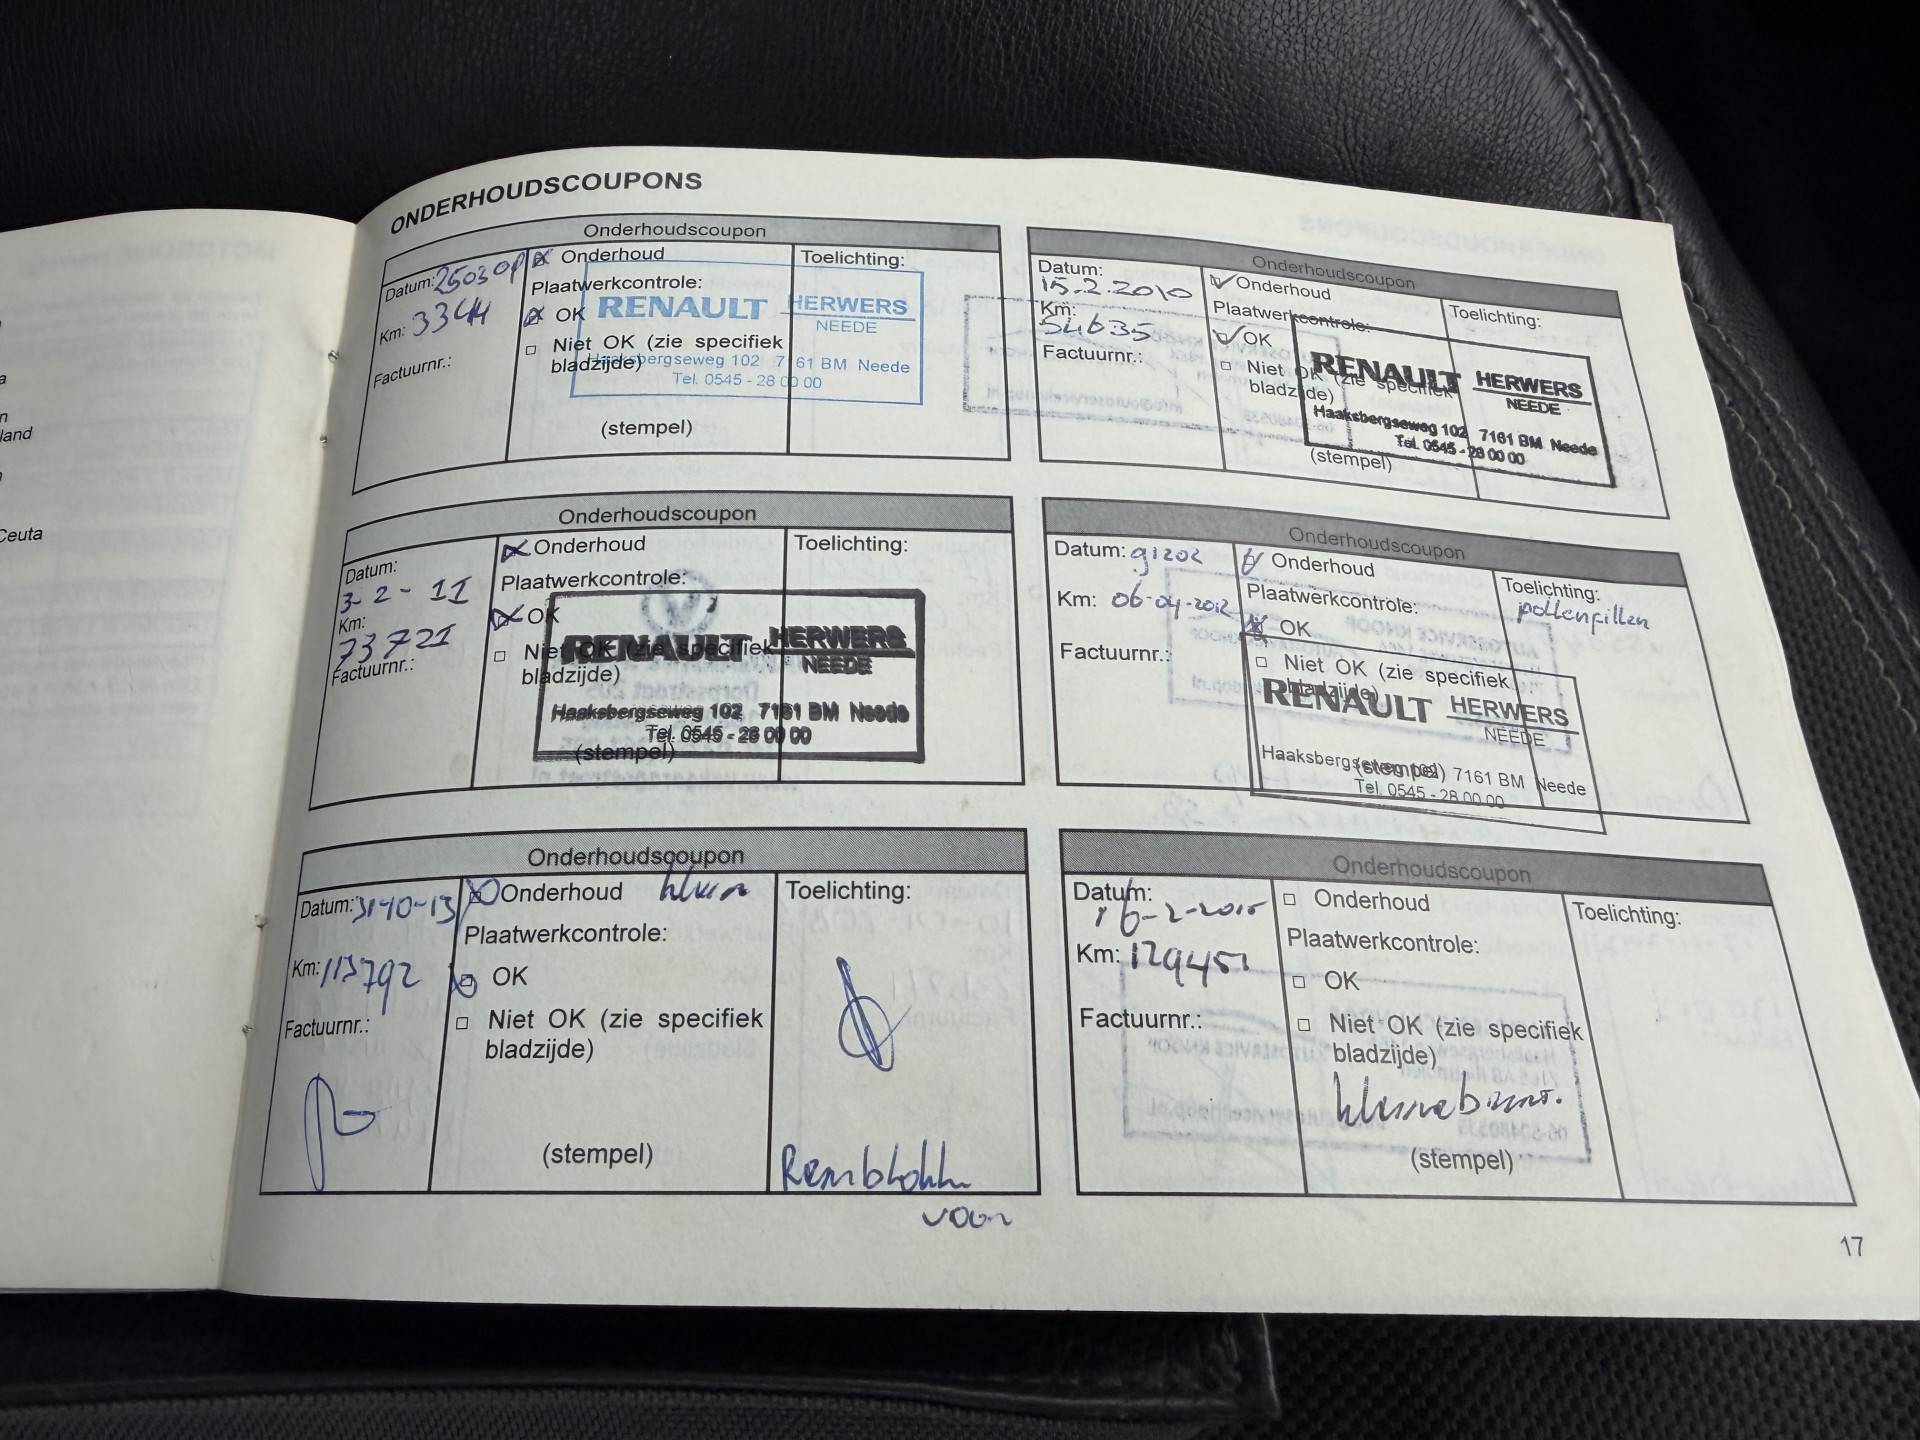 ONDERHOUDSCOUPONS
Onderhoudscoupon
Datum:
Km:
Factuurnr.:
Onderhoud
Plaatwerkcontrole:
OK
Niet OK (zie specifiek
bladzijde)
RENAULT HERWERS
NEEDE
Haaksbergseweg 102 7161 BM Neede
Tel. 0545 - 28 00 00
(stempel)
Toelichting:
Onderhoudscoupon
Datum:
15.2.2010
Km:
54635
Factuurnr.:
Onderhoud
Plaatwerkcontrole:
OK
Niet OK (zie specifiek
bladzijde)
RENAULT HERWERS
NEEDE
Haaksbergseweg 102 7161 BM Neede
Tel. 0545 - 28 00 00
(stempel)
Toelichting:
Onderhoudscoupon
Datum:
3-2-11
Km:
73721
Factuurnr.:
Onderhoud
Plaatwerkcontrole:
OK
Niet OK (zie specifiek
bladzijde)
RENAULT HERWERS
NEEDE
Haaksbergseweg 102 7161 BM Neede
Tel. 0545 - 28 00 00
(stempel)
Toelichting:
Onderhoudscoupon
Datum: 91202
Km: 06-04-2012
Factuurnr.:
Onderhoud
Plaatwerkcontrole:
OK
Niet OK (zie specifiek
bladzijde)
RENAULT HERWERS
NEEDE
Haaksbergseweg 102 7161 BM Neede
Tel. 0545 - 28 00 00
(stempel)
Toelichting:
Onderhoudscoupon
Datum:
Km: 113792
Factuurnr.:
Onderhoud
Plaatwerkcontrole:
OK
Niet OK (zie specifiek
bladzijde)
(stempel)
Toelichting:
voor
Onderhoudscoupon
Datum:
Km: 129451
Factuurnr.:
Onderhoud
Plaatwerkcontrole:
OK
Niet OK (zie specifiek
bladzijde)
(stempel)
Toelichting:
17
land
Ceuta